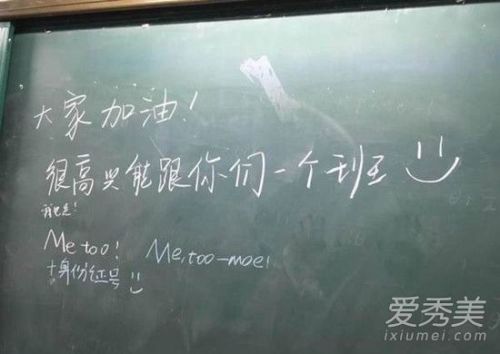 大家加油!
很高兴能跟你们一个班
我也是!
Me too!
Me, too-moe!
+身份证号
爱秀美
ixiumei.com